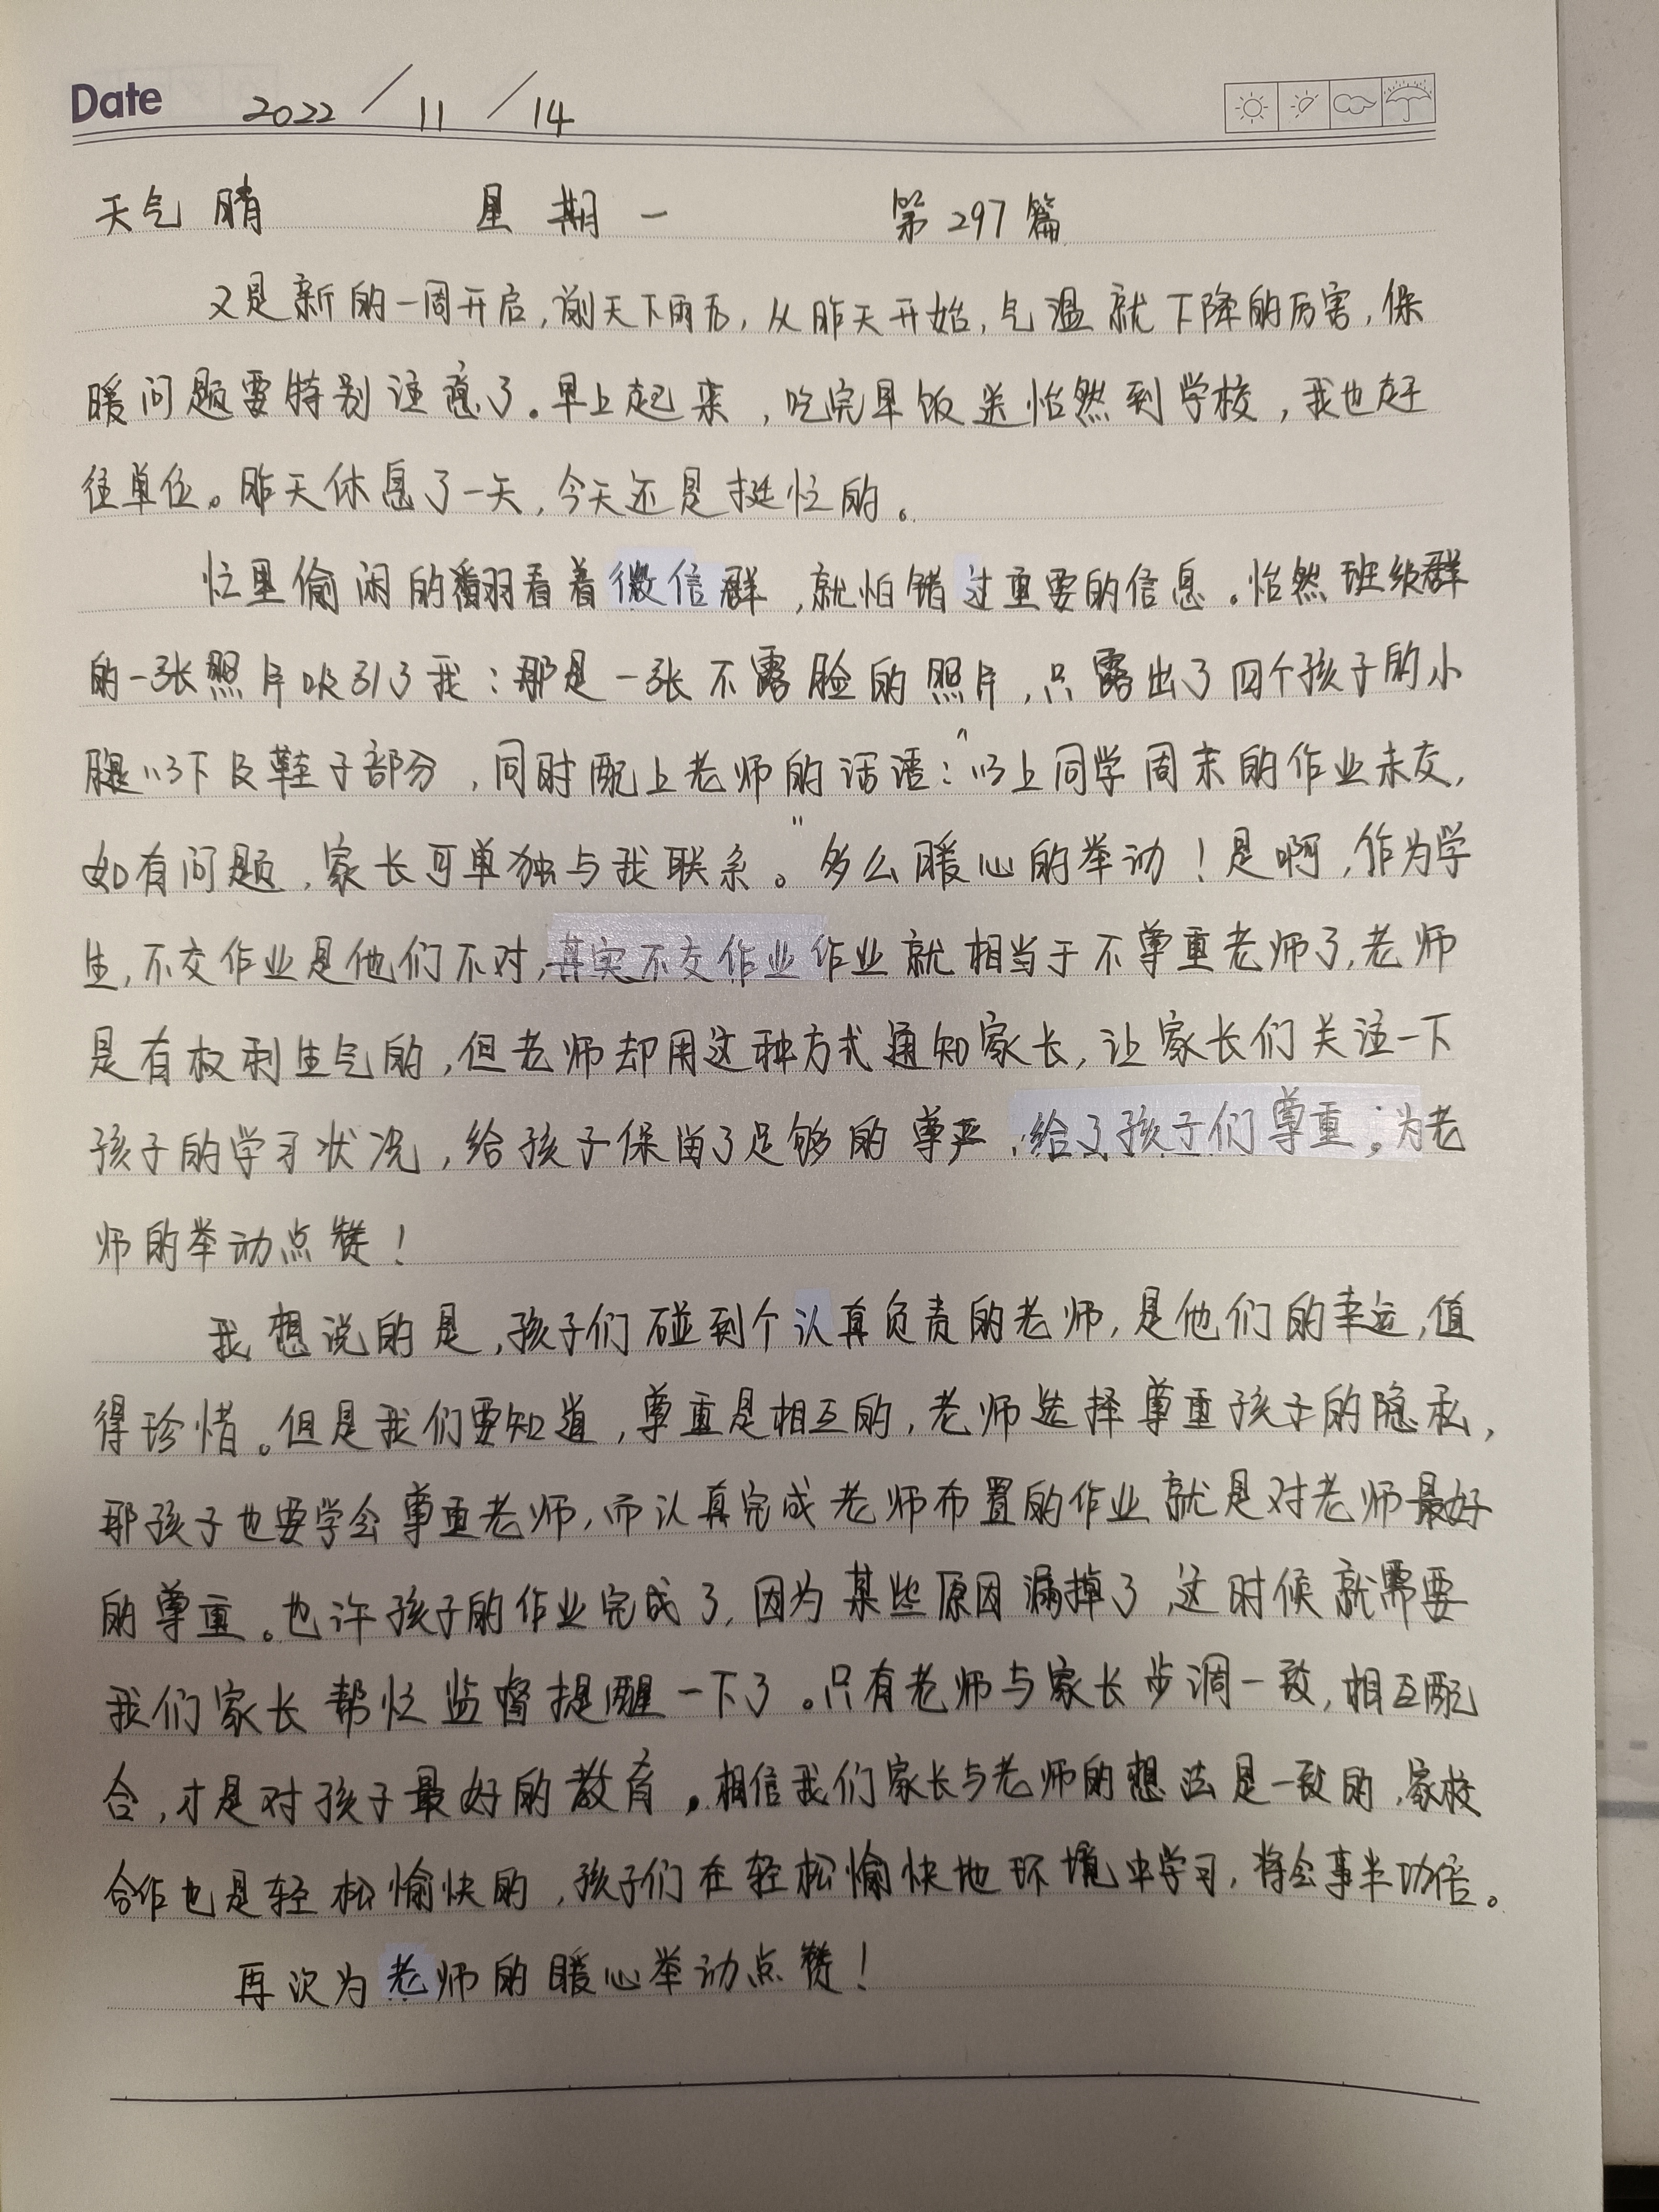 Date 2022 / 11 / 14
天气 晴 星期一 第297篇
又是新的一周开启,前天下雨后,从昨天开始,气温就下降的厉害,保
暖问题要特别注意了。早上起来,吃完早饭送怡然到学校,我也赶
往单位。昨天休息了一天,今天还是挺忙的。
忙里偷闲的翻看着微信群,就怕错过重要的信息。怡然班级群
的一张照片吸引了我:那是一张不露脸的照片,只露出了四个孩子的小
腿以下及鞋子部分,同时配上老师的话语:“以上同学周末的作业未交,
如有问题,家长可单独与我联系。”多么暖心的举动!是啊,作为学
生,不交作业是他们不对,其实不交作业作业就相当于不尊重老师了,老师
是有权利生气的,但老师却用这种方式通知家长,让家长们关注一下
孩子的学习状况,给孩子保留了足够的尊严,给了孩子们尊重。为老
师的举动点赞!
我想说的是,孩子们碰到个认真负责的老师,是他们的幸运,值
得珍惜。但是我们要知道,尊重是相互的,老师选择尊重孩子的隐私,
那孩子也要学会尊重老师,而认真完成老师布置的作业就是对老师最好
的尊重。也许孩子的作业完成了,因为某些原因漏掉了,这时候就需要
我们家长帮忙监督提醒一下了。只有老师与家长步调一致,相互配
合,才是对孩子最好的教育。相信我们家长与老师的想法是一致的,家校
合作也是轻松愉快的,孩子们在轻松愉快地环境中学习,将会事半功倍。
再次为老师的暖心举动点赞!